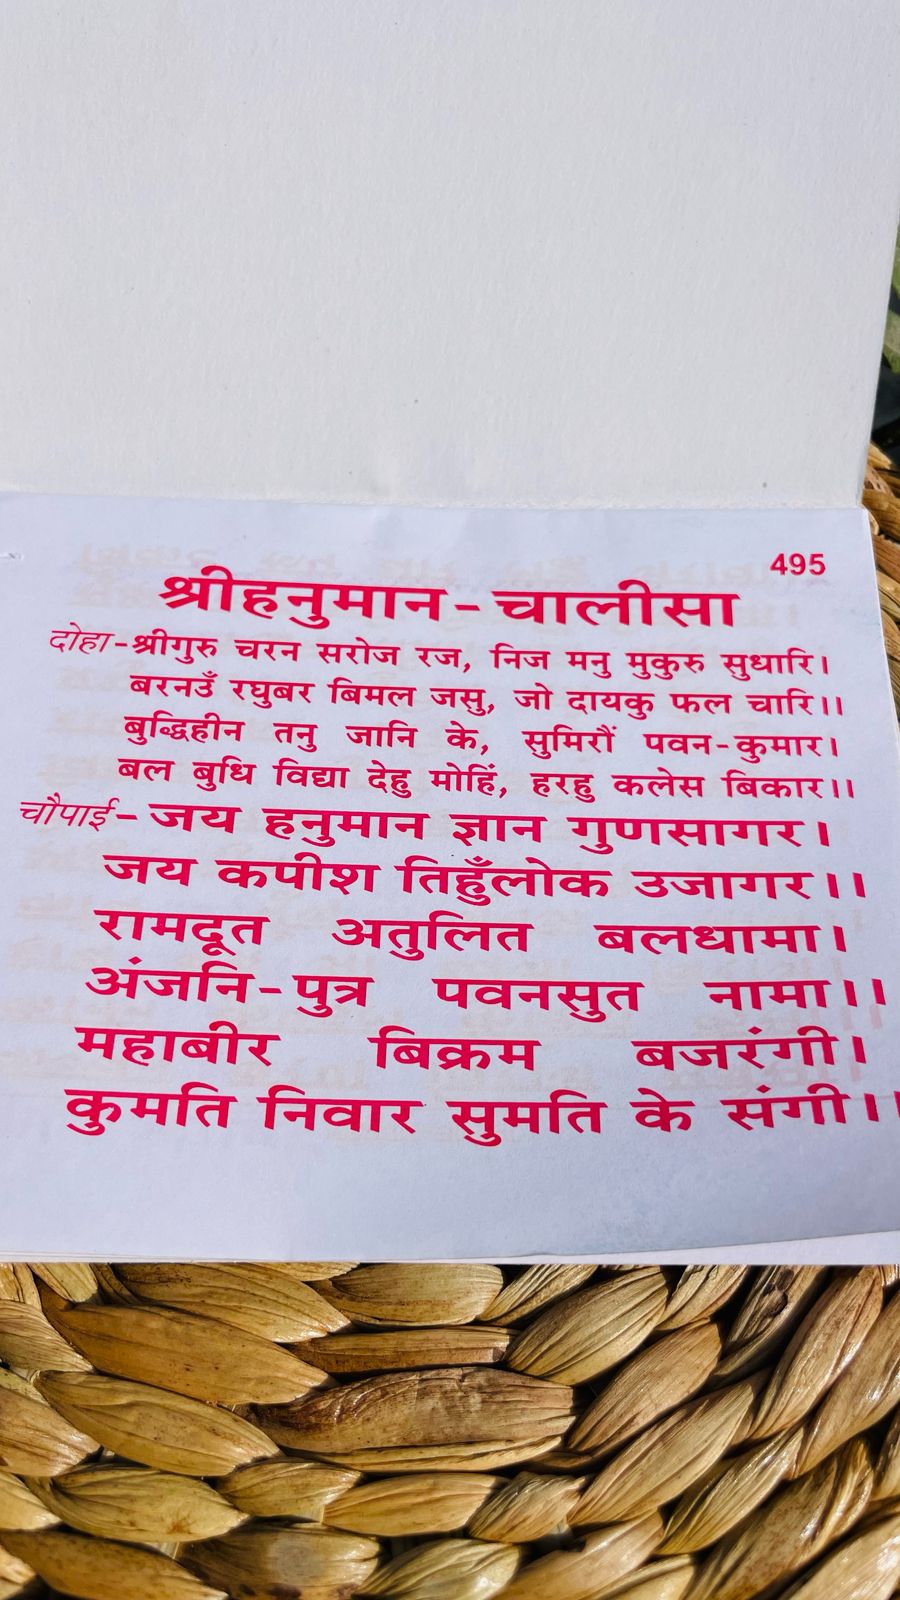 495
श्रीहनुमान-चालीसा
दोहा-श्रीगुरु चरन सरोज रज, निज मनु मुकुरु सुधारि।
बरनउँ रघुबर बिमल जसु, जो दायकु फल चारि।।
बुद्धिहीन तनु जानि के, सुमिरौं पवन-कुमार।
बल बुधि विद्या देहु मोहिं, हरहु कलेस बिकार।।
चौपाई-जय हनुमान ज्ञान गुणसागर।
जय कपीश तिहुँलोक उजागर।।
रामदूत अतुलित बलधामा।
अंजनि-पुत्र पवनसुत नामा।।
महाबीर बिक्रम बजरंगी।
कुमति निवार सुमति के संगी।।